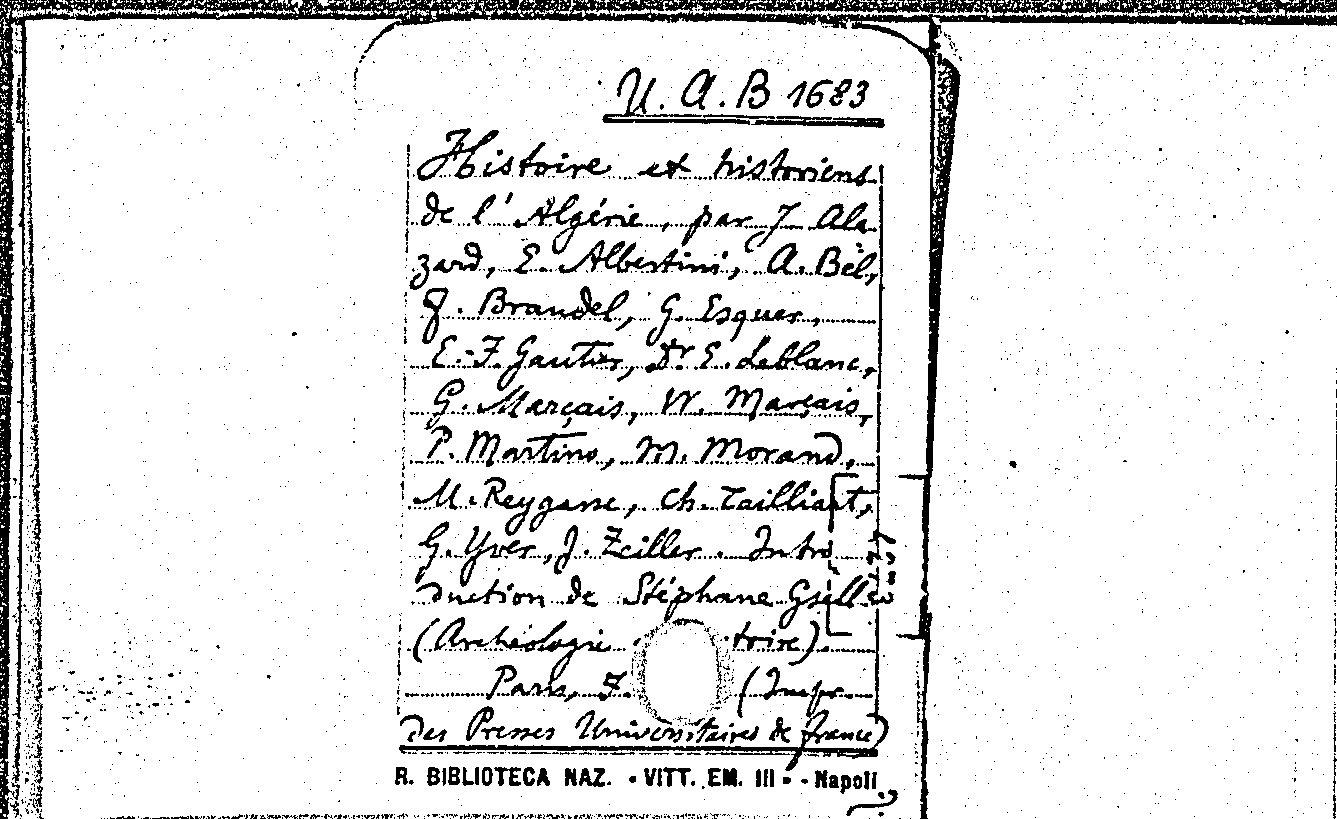 U. A. B 1683
Histoire et historiens
de l'Algérie, par J. Ala
zard, E. Albertini, A. Bel,
F. Braudel, G. Esquer,
E.-F. Gautier, Dr E. Leblanc,
G. Marçais, W. Marçais,
P. Martino, M. Morand,
M. Reygasse, Ch. Tailliart,
G. Yver, J. Zeiller. Intro
duction de Stéphane Gsell
(Archéologie toire).
Paris, F. (Impr.
des Presses Universitaires de France)
R. BIBLIOTECA NAZ. • VITT. EM. III • - Napoli